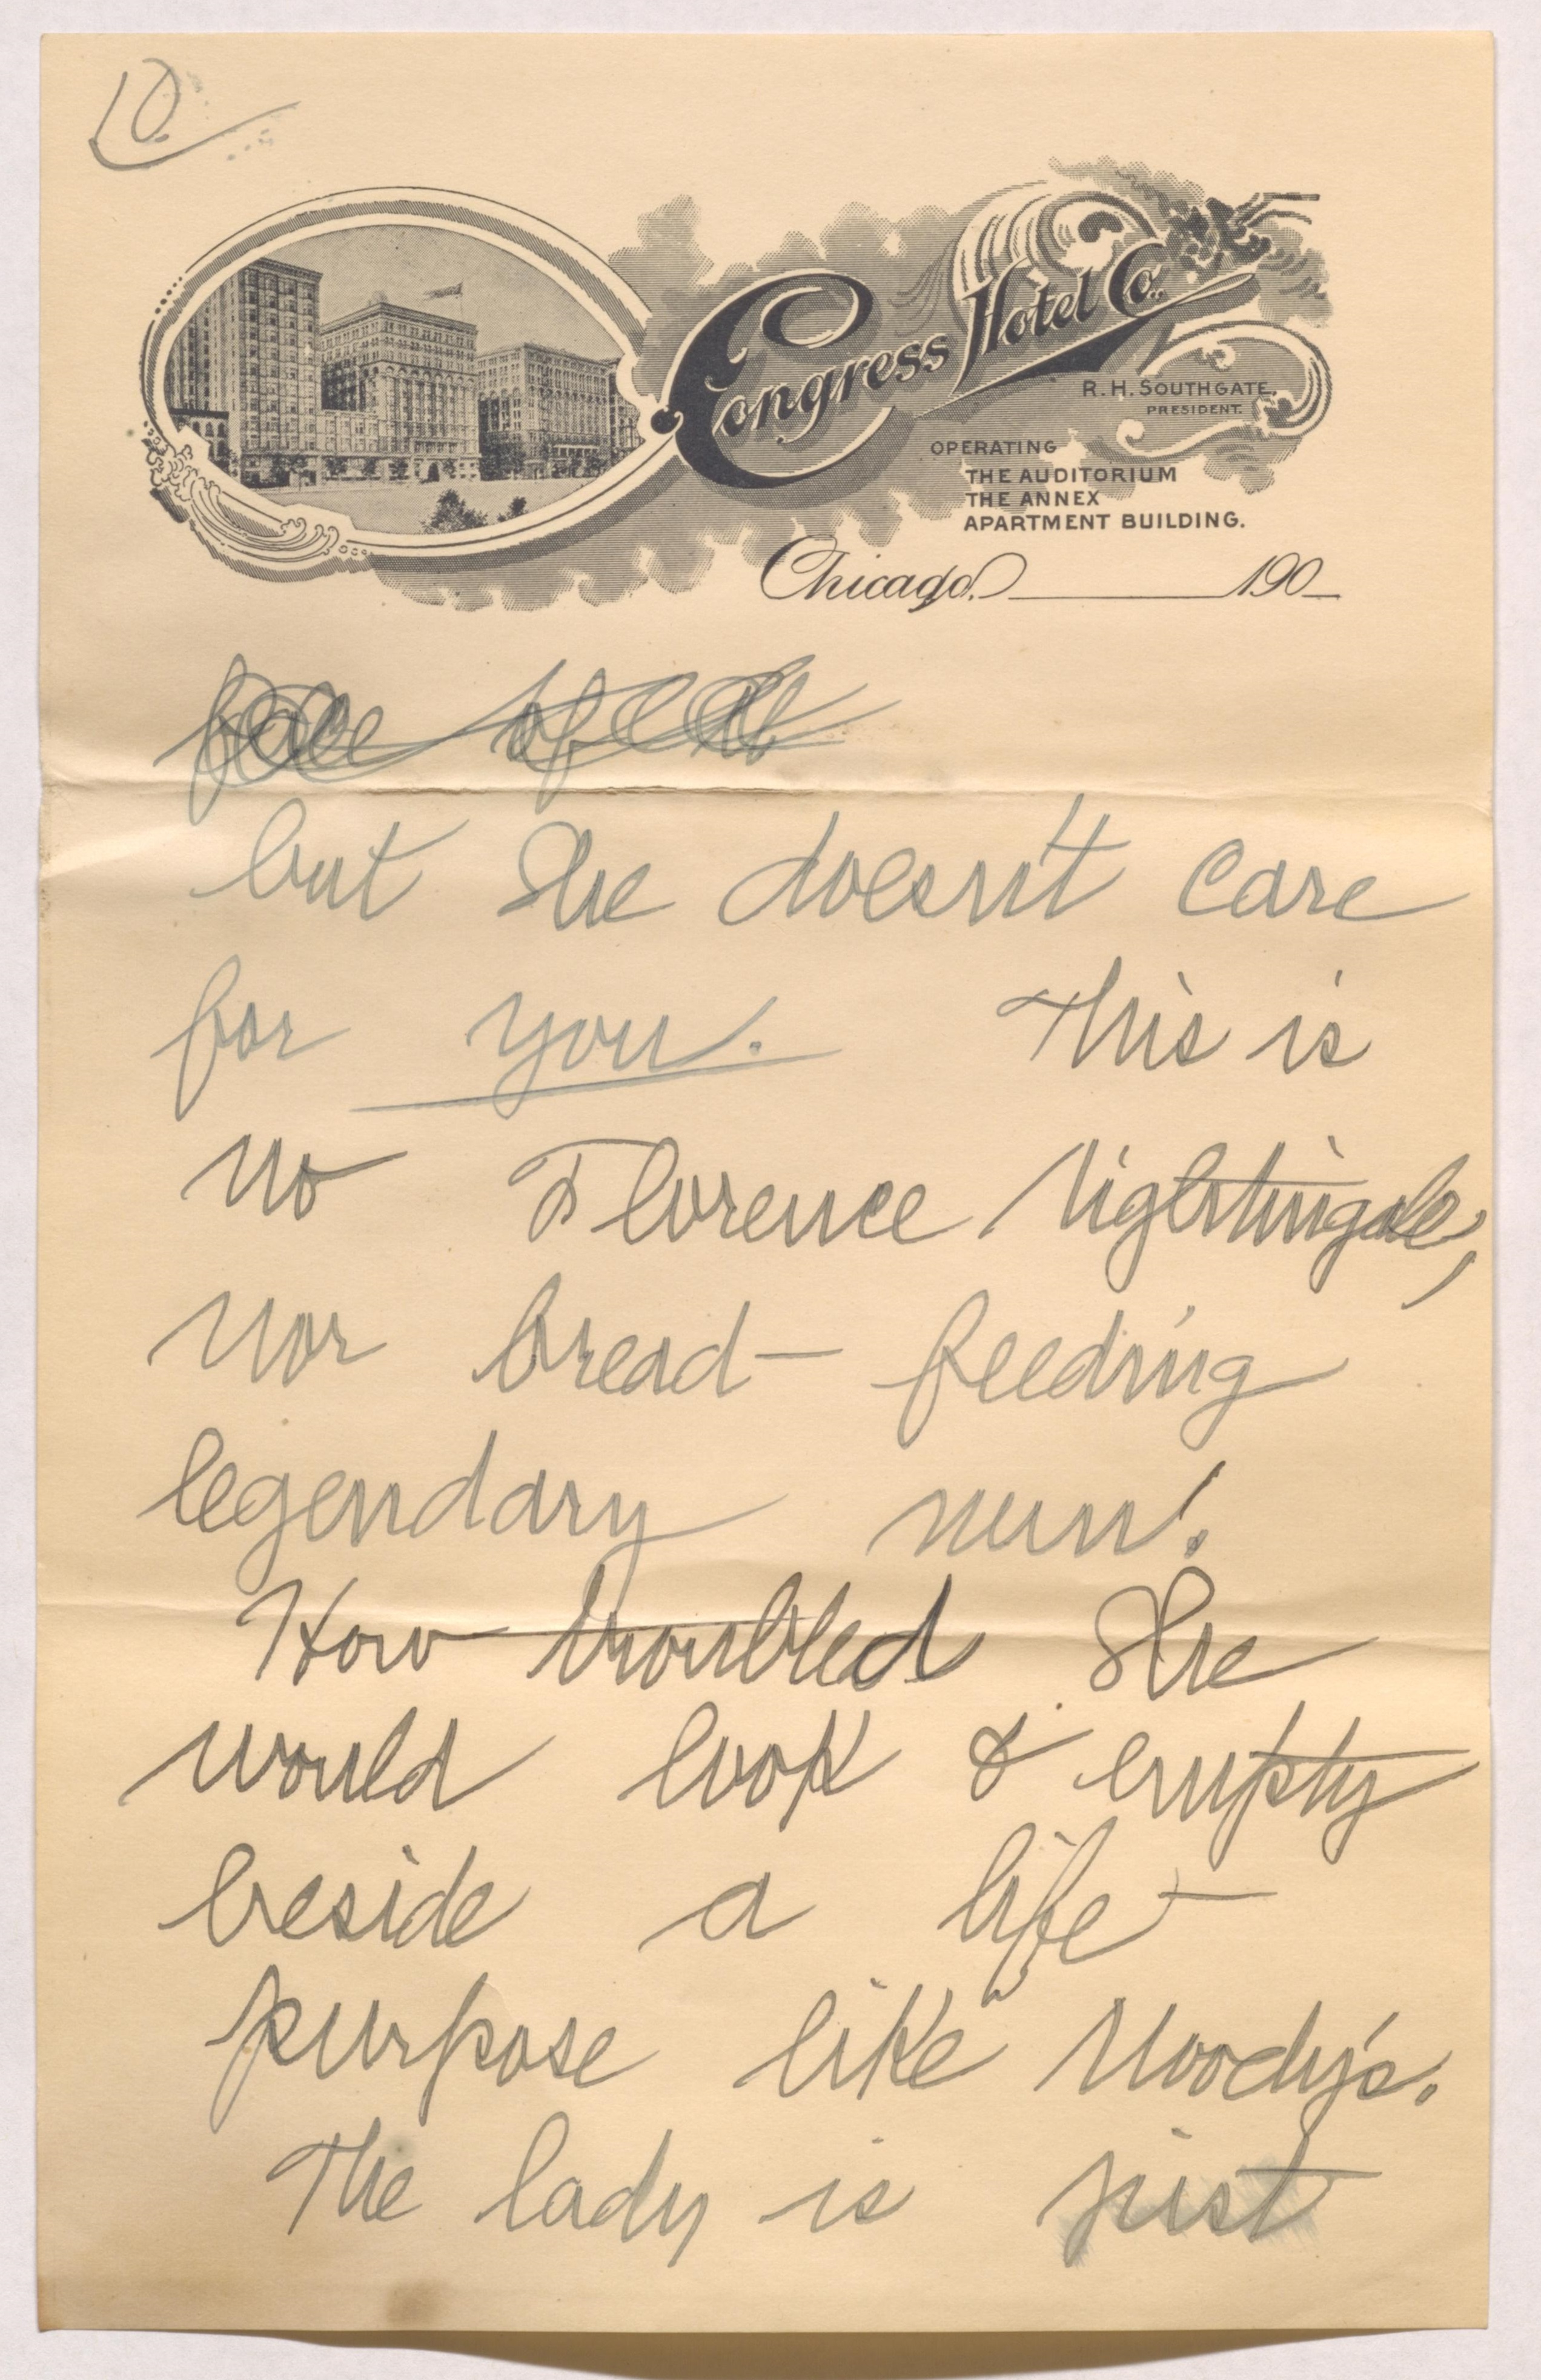 10.
Congress Hotel Co.
R. H. SOUTHGATE,
PRESIDENT.
OPERATING
THE AUDITORIUM
THE ANNEX
APARTMENT BUILDING.
Chicago, 190
but she doesn't care
for you. This is
no Florence Nightingale,
nor bread-feeding
legendary nun!
How troubled she
would look & empty
beside a life-
purpose like Moody's.
The lady is just